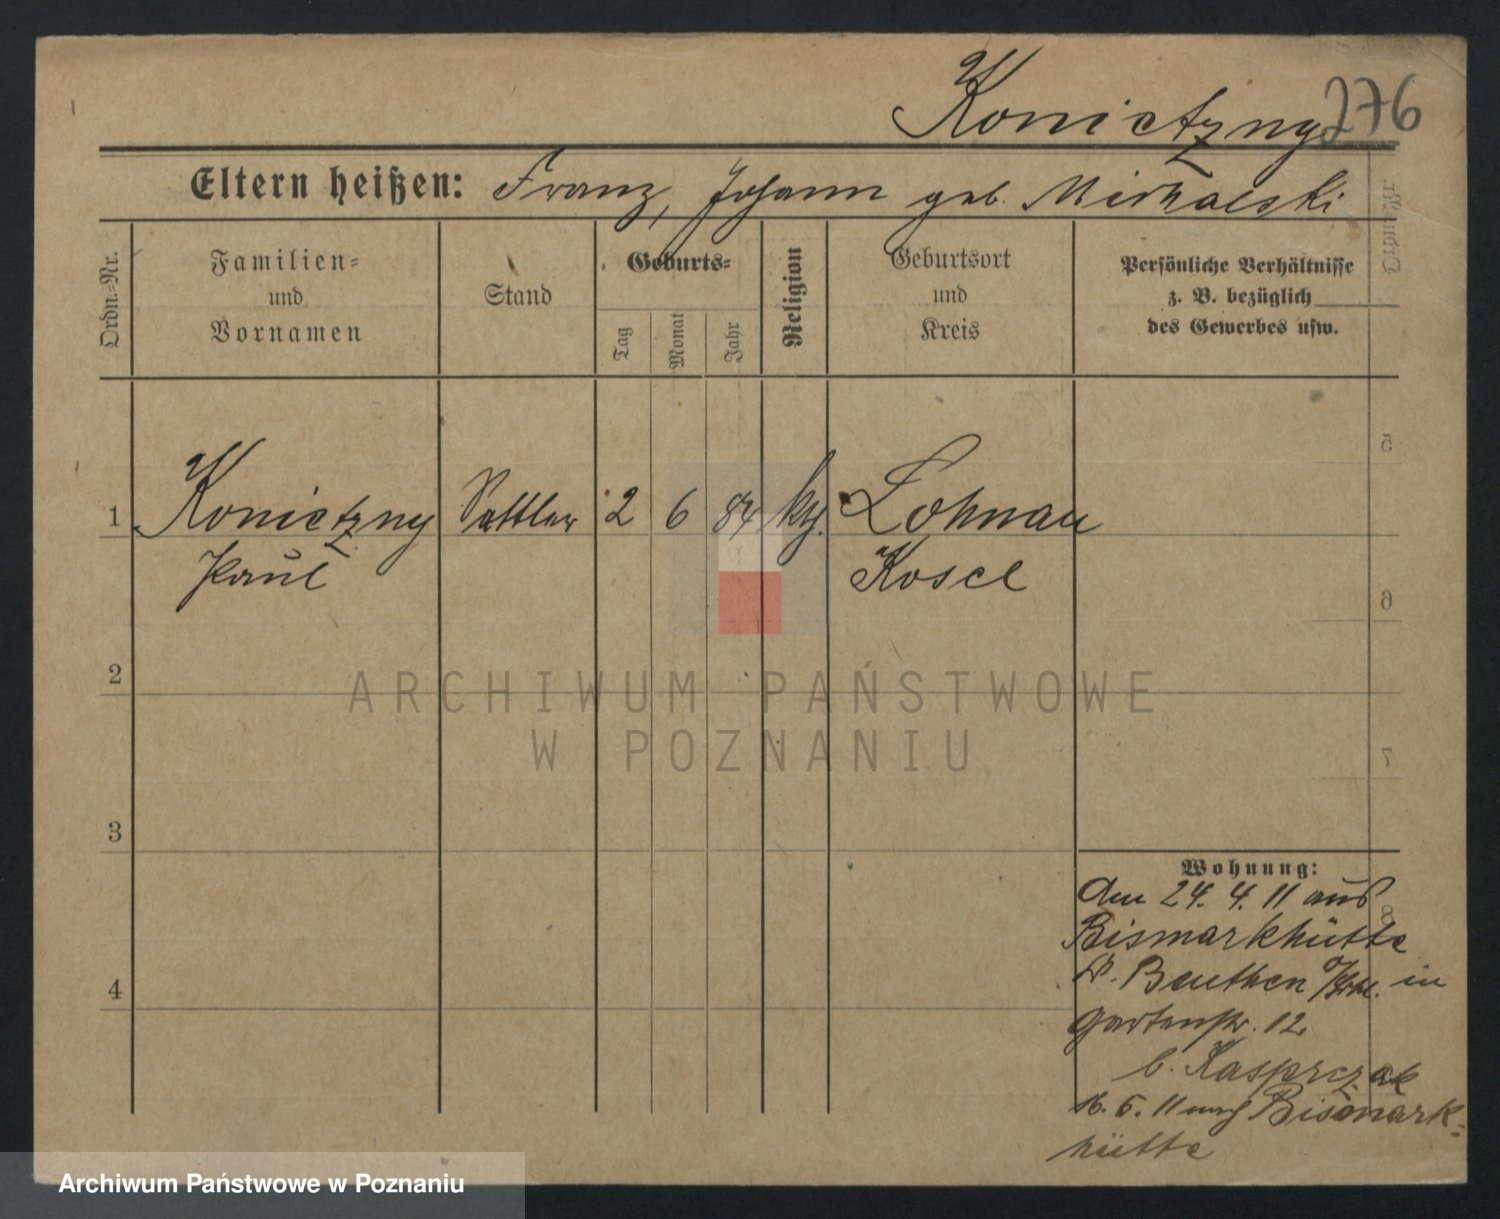 Konietzny 276
Eltern heißen: Franz, Johann geb. Michalski
Ordn.-Nr.
Familien-
und
Vornamen
Stand
Geburts-
Tag
Monat
Jahr
Religion
Geburtsort
und
Kreis
Persönliche Verhältnisse
z. B. bezüglich
des Gewerbes usw.
1 Konietzny Sattler 2 6 84 kth. Lohnau
Paul Kosel
2
3
4
Wohnung:
Am 24. 4. 11 aus
Bismarkhütte
Kr. Beuthen in
Gartenstr. 12.
b. Kasprczak
16. 5. 11 nach Bismark-
hütte
5
6
7
8
ARCHIWUM PAŃSTWOWE
W POZNANIU
Archiwum Państwowe w Poznaniu